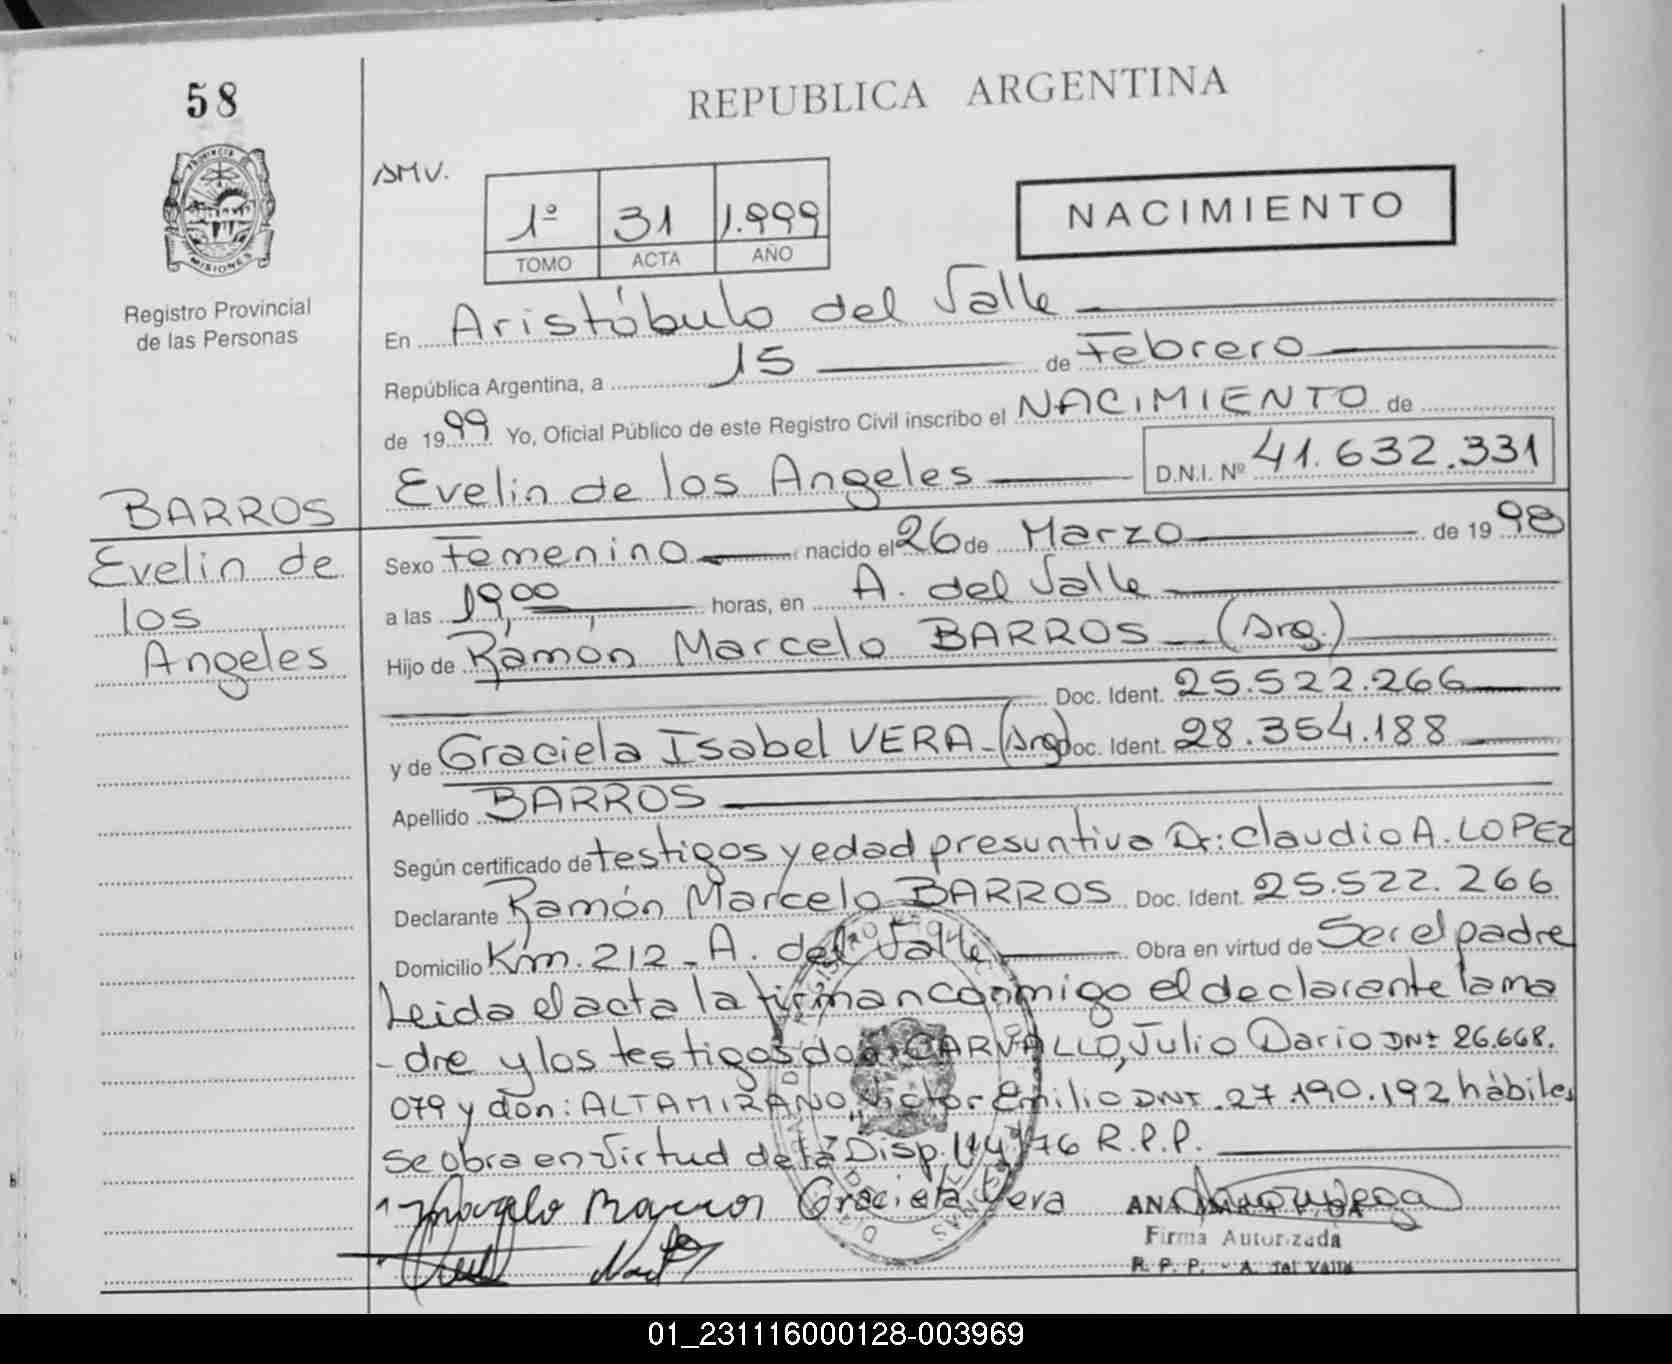 58
REPUBLICA ARGENTINA
PROVINCIA DE
MISIONES
Registro Provincial
de las Personas
SMV.
1º 31 1.999
TOMO ACTA AÑO
NACIMIENTO
En Aristóbulo del Valle
República Argentina, a 15 de Febrero
de 1999 Yo, Oficial Público de este Registro Civil inscribo el NACIMIENTO de
Evelin de los Angeles D.N.I. Nº 41.632.331
BARROS
Evelin de
los
Angeles
Sexo Femenino nacido el 26 de Marzo de 1998
a las 19,00 horas, en A. del Valle
Hijo de Ramón Marcelo BARROS (Arg.)
Doc. Ident. 25.522.266
y de Graciela Isabel VERA - (Arg) Doc. Ident. 28.354.188
Apellido BARROS
Según certificado de testigos y edad presuntiva Dr: Claudio A. LOPEZ
Declarante Ramón Marcelo BARROS Doc. Ident. 25.522.266
Domicilio Km. 212 - A. del Valle Obra en virtud de Ser el padre
Leida el acta la firman conmigo el declarante la ma
-dre y los testigos don: CARVALLO, Julio Dario DNI 26.668.
079 y don: ALTAMIRANO, Victor Emilio DNI. 27.190.192 hàbiles
se obra en virtud de la Disp. 114/76 R.P.P.
Marcelo Barros Graciela Vera
Firma Autorizada
R. P. P. - A. del Valle
01_231116000128-003969